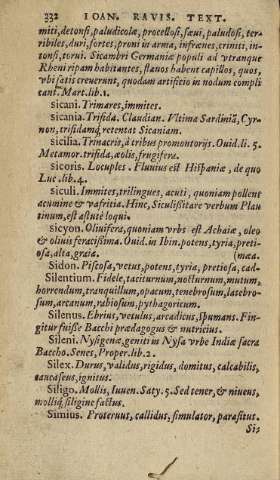 332 IOAN. RAVIS. TEXT.
miti, detonsi, paludicolæ, procellosi, sæui, paludosi, ter-
ribiles, duri, fortes, proni in arma, infrænes, criniti, in-
tonsi, torui. Sicambri Germaniæ populi ad vtranque
Rheni ripam habitantes, flauos habent capillos, quos,
vbi satis creuerunt, quodam artificio in nodum compli
cant. Mart. lib. 1.
sicani. Trimares, immites.
sicania. Trifida. Claudian. Vltima Sardiniā, Cyr-
non, trifidamq́; retentat Sicaniam.
sicilia. Trinacris, à tribus promontorijs. Ouid. li. 5.
Metamor. trifida, æolis, frugifera.
sicoris. Locuples. Fluuius est Hispaniæ, de quo
Luc. lib. 4.
siculi. Immites, trilingues, acuti, quoniam pollent
acumine & vafritia. Hinc, Siculissitare verbum Plau
tinum, est astutè loqui.
sicyon. Oliuifera, quoniam vrbs est Achaiæ, oleo
& oliuis feracissima. Ouid. in Ibin. potens, tyria, preti-
osa, alta, graia. (mæa.
Sidon. Piscosa, vetus, potens, tyria, pretiosa, cad-
Silentium. Fidele, taciturnum, nocturnum, mutum,
horrendum, tranquillum, opacum, tenebrosum, latebro-
sum, arcanum, rabiosum, pythagoricum.
Silenus. Ebrius, vetulus, arcadicus, spumans. Fin-
gitur fuisse Bacchi prædagogus & nutricius.
Sileni. Nysigenæ, geniti in Nysa vrbe Indiæ sacra
Baccho. Senes, Proper. lib. 2.
Silex. Durus, validus, rigidus, domitus, calcabilis,
caucaseus, ignitus.
Siligo. Mollis, Iuuen. Saty. 5. Sed tener, & niueus,
molliq́; siligine factus.
Simius. Proteruus, callidus, simulator, parasitus.
Sis